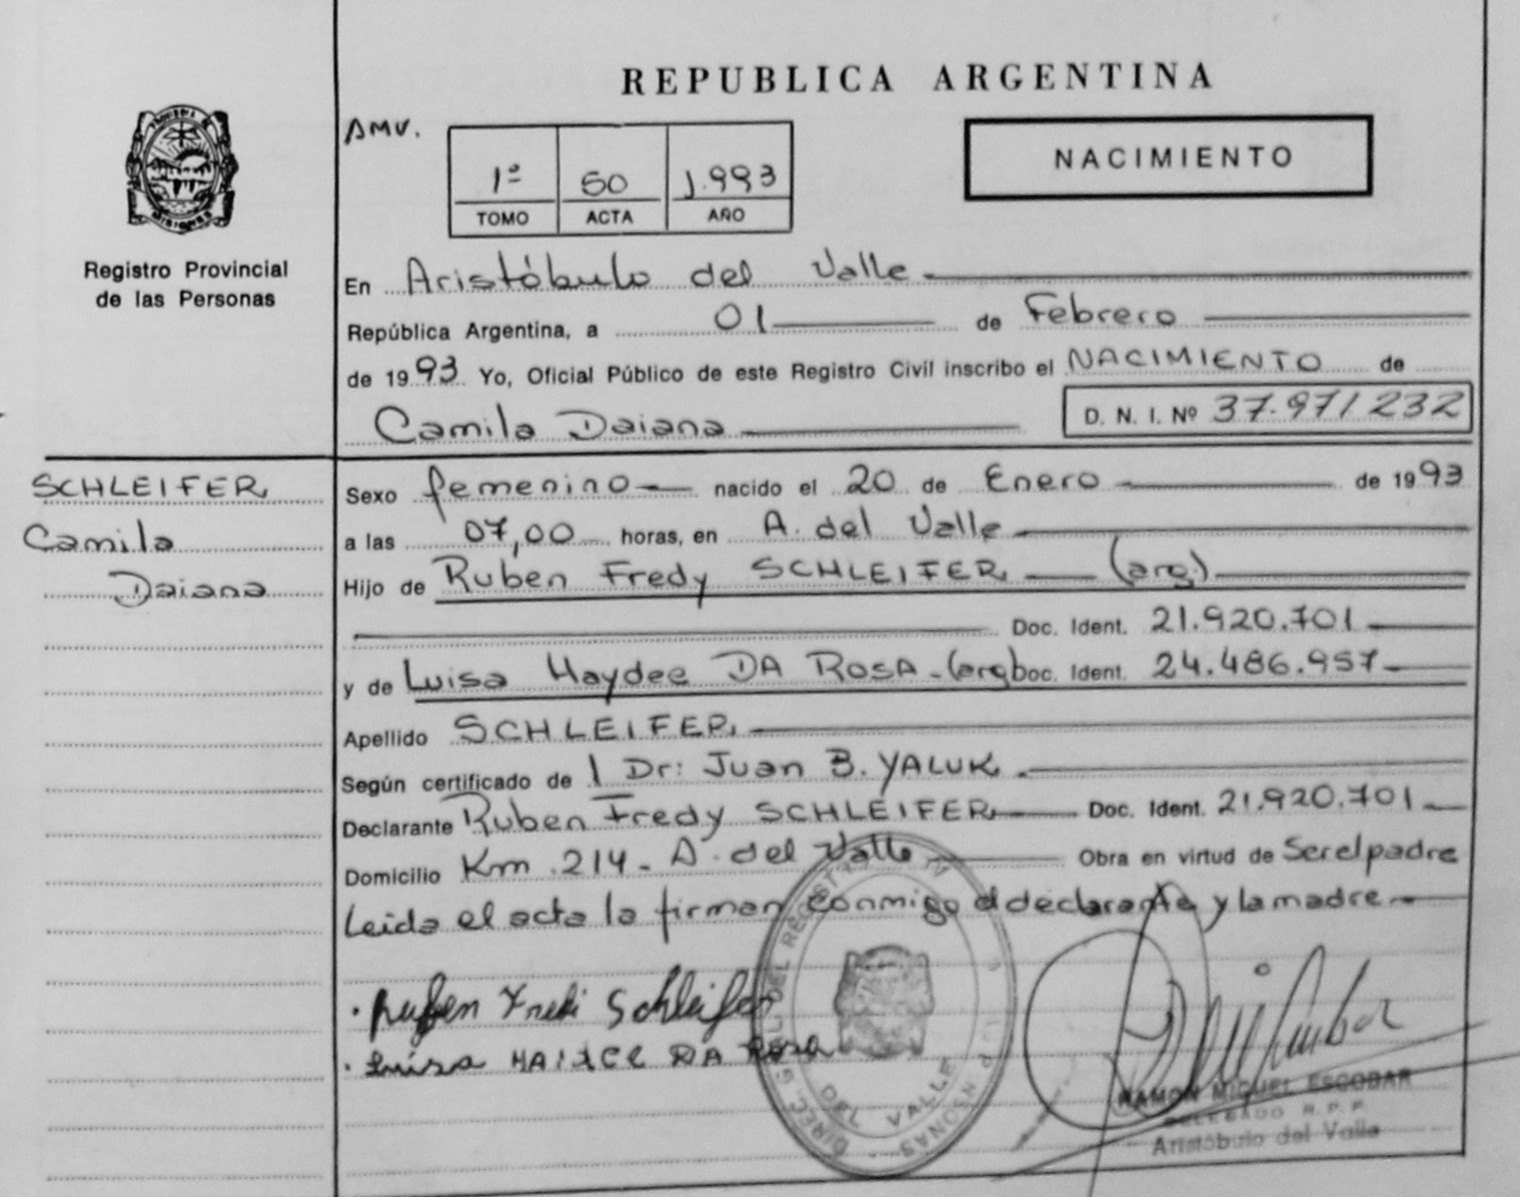 REPUBLICA ARGENTINA
AMV.
1º 50 1.993
TOMO ACTA AÑO
NACIMIENTO
MISIONES
Registro Provincial
de las Personas
En Aristóbulo del Valle
República Argentina, a 01 de Febrero
de 1993 Yo, Oficial Público de este Registro Civil inscribo el NACIMIENTO de
Camila Daiana D. N. I. Nº 37.971 232
SCHLEIFER,
Camila
Daiana
Sexo femenino nacido el 20 de Enero de 1993
a las 07,00 horas, en A. del Valle
Hijo de Ruben Fredy SCHLEIFER (arg.)
Doc. Ident. 21.920.701
y de Luisa Haydee DA ROSA - (arg) Doc. Ident. 24.486.957
Apellido SCHLEIFER,
Según certificado de 1 Dr: Juan B. YALUK.
Declarante Ruben Fredy SCHLEIFER Doc. Ident. 21.920.701
Domicilio Km. 214 - A. del Valle Obra en virtud de Ser el padre
Leida el acta la firman conmigo el declarante y la madre
Ruben Fredi Schleifer
Luisa HAIDEE DA Rosa
DEL VALLE
RAMON MIGUEL ESCOBAR
DELEGADO R. P. P.
Aristóbulo del Valle